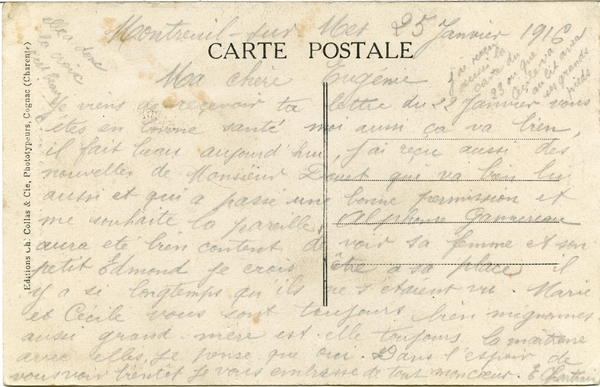 Montreuil-sur Mer 25 Janvier 1916
CARTE POSTALE
Ma chère Eugénie
Je viens de recevoir ta lettre du 22 Janvier vous
êtes en bonne santé moi aussi ça va bien,
il fait beau aujourd'hui, j'ai reçu aussi des
nouvelles de Monsieur Douet que va bien lui
aussi et qui a passé une bonne permission et
me souhaite la pareille, Alphonse
aura eté bien content de voir sa femme et son
petit Edmond je crois être à sa place il
y a si longtemps qu'ils ne s'etaient vu. Marie
et Cécile vous sont toujours bien mignonnes
aussi grand-mère est-elle toujours la
avec elles, je pense que oui. Dans l'espoir de
vous voir bientôt je vous embrasse de tout mon cœur. E
j'ai reçu
aussi ta
carte du
23 que
Cécile va
au lit avec
ses grands
pieds
la croix
Editions Ch. Collas & Cie, Phototypeurs, Cognac (Charente)